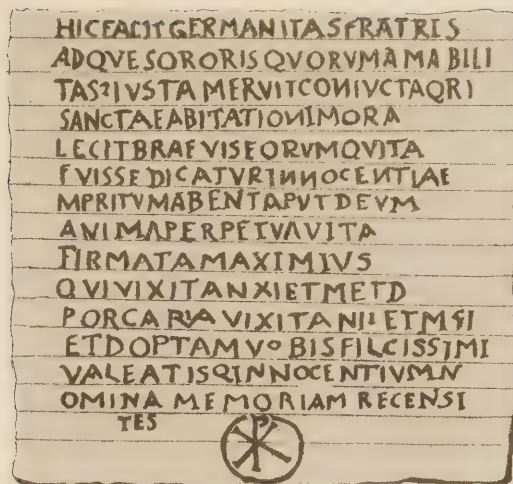 HICFACIT GERMANITAS FRATRIS
ADQVE SORORIS QVORVM AMABILI
TAS IVSTA MERVIT CONIVCTAQRI
SANCTAE ABITATIONI MORA
LECIT BRAEVIS EORVM QVITA
FVISSE DICATVR INNOCENTIAE
MPRITVM ABENT APVT DEVM
ANIMA PERPETVA VITA
FIRMATA MAXIMIVS
QVI VIXIT AN XI ET M ET D
PORCARIA VIXIT AN II ET M
ET D OPTAM VOBIS FILCISSIMI
VALEATIS QINNOCENTIVM N
OMINA MEMORIAM RECENSI
TES